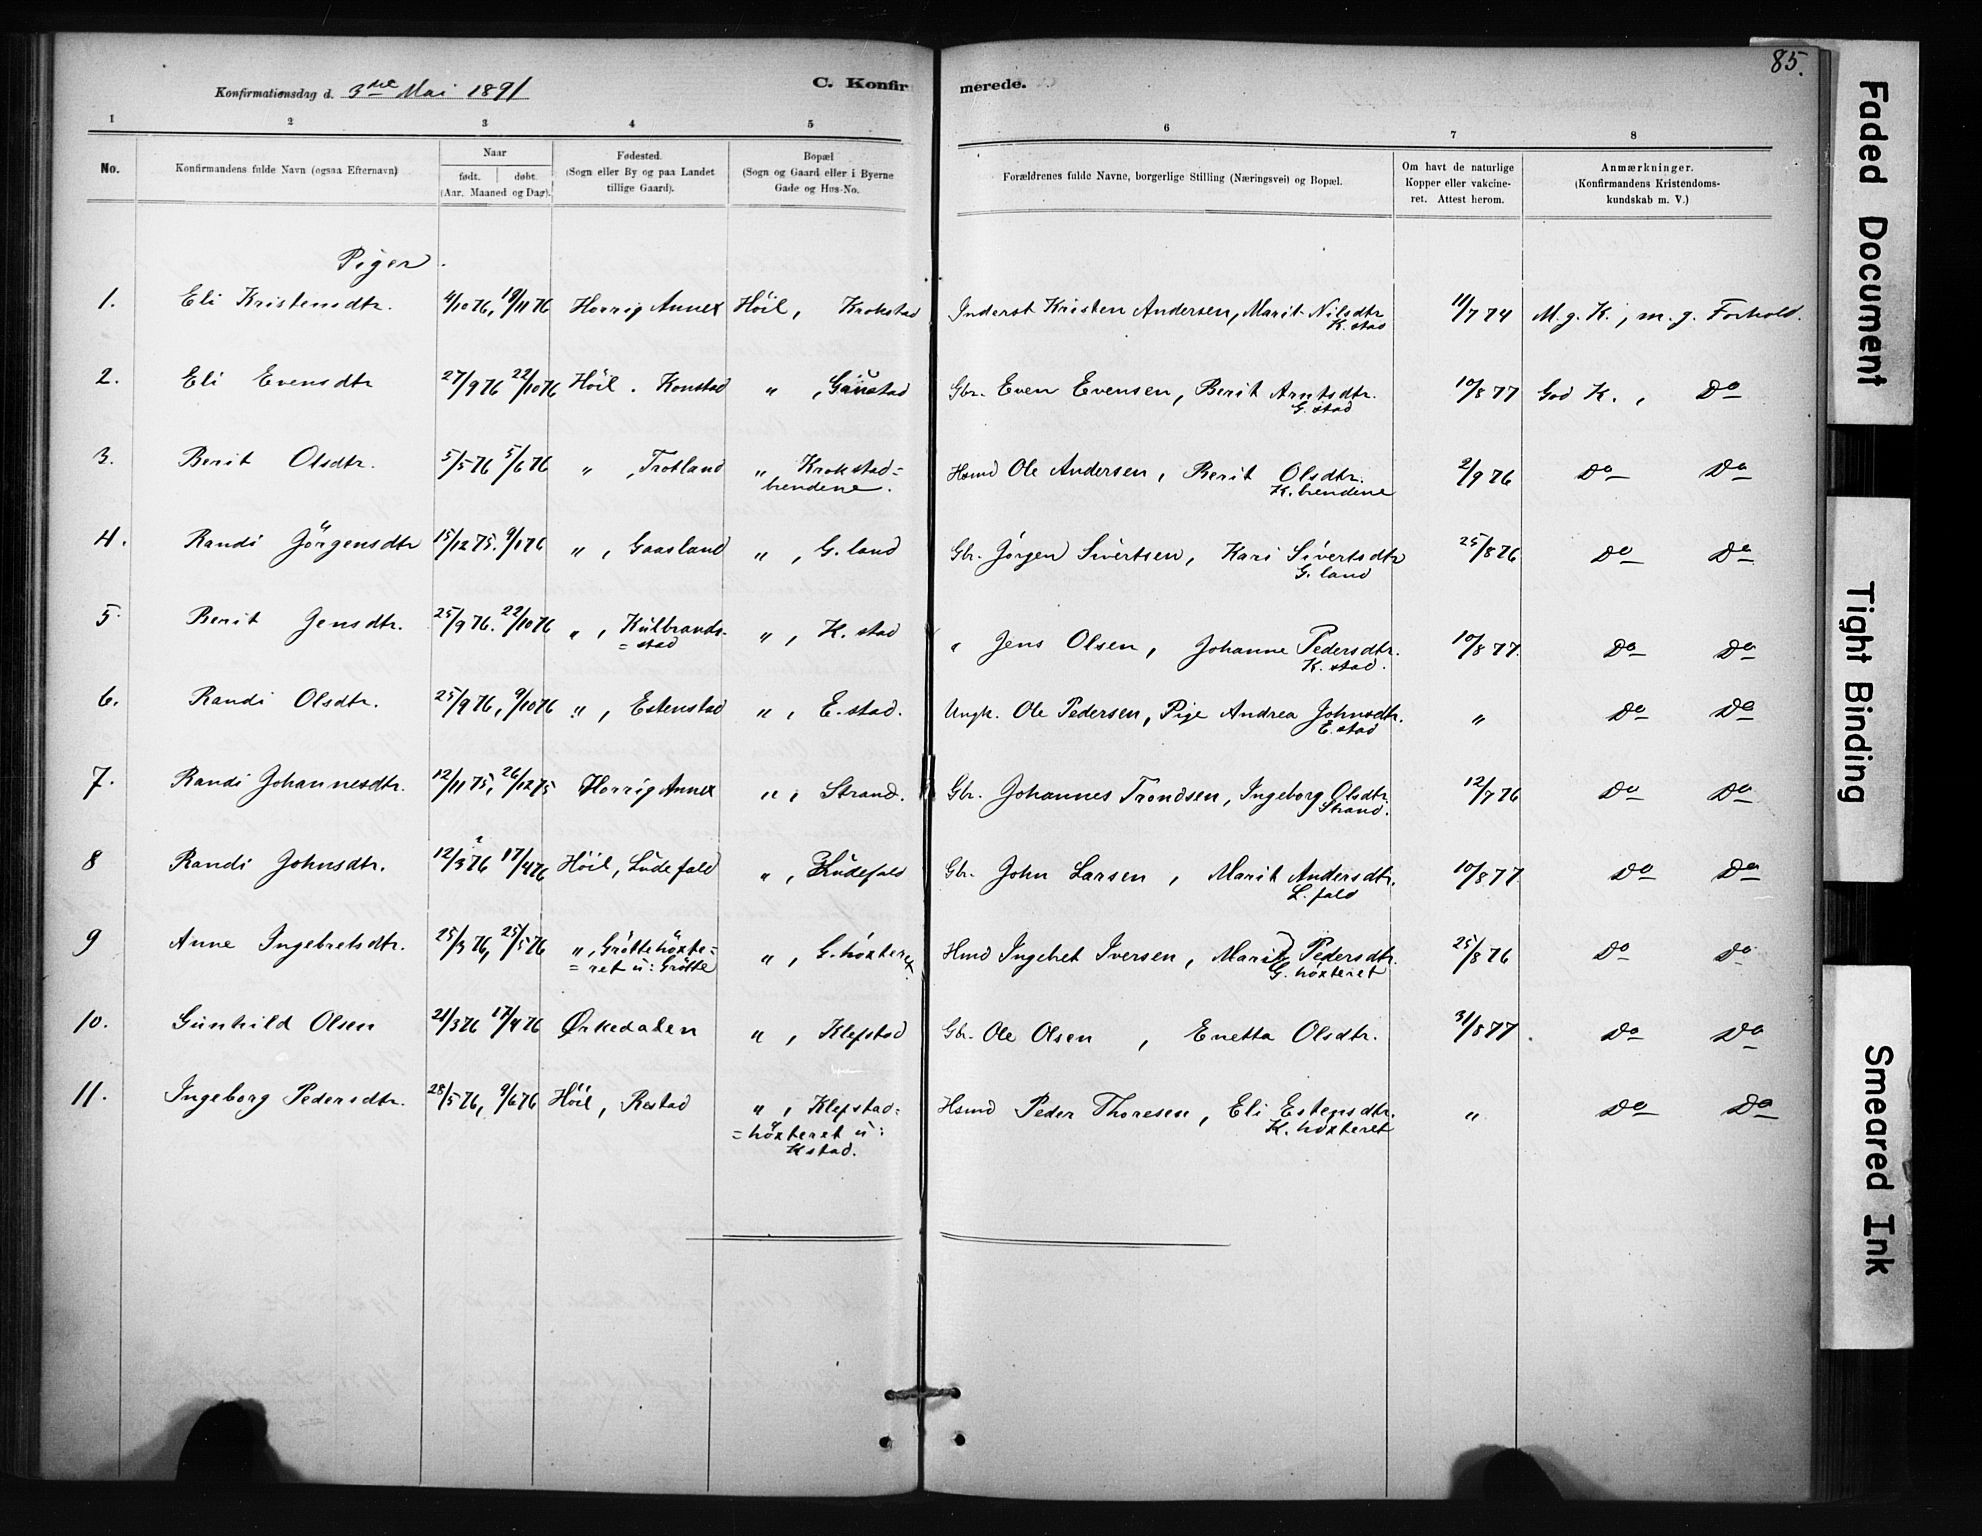 85.
Konfirmationsdag d. 3die Mai 1891
C. Konfirmerede.
1 2 3 4 5 6 7 8
No. Konfirmandens fulde Navn (ogsaa Efternavn) Naar født. døbt. (Aar. Maaned og Dag). Fødested. (Sogn eller By og paa Landet tillige Gaard). Bopæl (Sogn og Gaard eller i Byerne Gade og Hus-No. Forældrenes fulde Navne, borgerlige Stilling (Næringsvei) og Bopæl. Om havt de naturlige Kopper eller vakcineret. Attest herom. Anmærkninger. (Konfirmandens Kristendomskundskab m. V.)
Piger.
1. Eli Kristensdtr. 4/10 76, 19/11 76 Horrig Annex Höil, Krokstad Inderst Kristen Andersen, Marit Nilsdtr. K.stad 11/7 74 M.g.K., m.g. Forhold.
2. Eli Evensdtr 27/9 76 22/10 76 Höil. Konstad " , Gaustad Gbr. Even Evensen, Berit Arntsdtr. G.stad 10/8 77 God K., Do
3. Berit Olsdtr. 5/5 76 5/6 76 " , Trotland " Krokstad= brendene. Hsmd Ole Andersen, Berit Olsdtr. K.brendene 2/9 76 Do Do
4. Randi Jörgensdtr 15/12 75. 9/1 76 " , Gaasland " , G.land Gbr. Jörgen Sivertsen, Kari Sivertsdtr G.land 25/8 76 Do Do
5. Berit Jensdtr. 25/9 76. 22/10 76 " , Kulbrands= =stad " , K.stad " Jens Olsen, Johanne Pedersdtr. K.stad. 10/8 77. Do Do
6. Randi Olsdtr. 25/9 76, 9/10 76 " , Estenstad " , E.stad. Ungk. Ole Pedersen, Pige Andrea Johnsdtr. E.stad " Do Do
7. Randi Johannesdtr. 12/11 75, 26/12 75 Horrig Annex " , Strand. Gbr. Johannes Trondsen, Ingeborg Olsdtr. Strand. 12/7 76 Do Do
8 Randi Johnsdtr. 12/3 76 17/4 76 Höil, Ludefald " , Ludefald Gbr. John Larsen, Marit Andersdtr. L.fald 10/8 77 Do Do
9 Anne Ingebretsdtr. 25/3 76, 25/5 76 " , Gröttehöxte= =ret u: Grötte " , G.höxteret Hmd Ingebret Iversen, Marit Pedersdtr. G.höxteret 25/8 76 Do Do
10. Gunhild Olsen 21/3 76 17/4 76 Ørkedalen " , Klefstad Gbr. Ole Olsen, Enetta Olsdtr. 31/8 77. Do Do
11. Ingeborg Pedersdtr. 28/5 76, 9/6 76 Höil, Restad " , Klefstad= =höxteret u: Kstad. Hsmd Peder Thoresen, Eli Estensdtr. K.höxteret " Do Do
Faded Document
Tight Binding
Smeared Ink